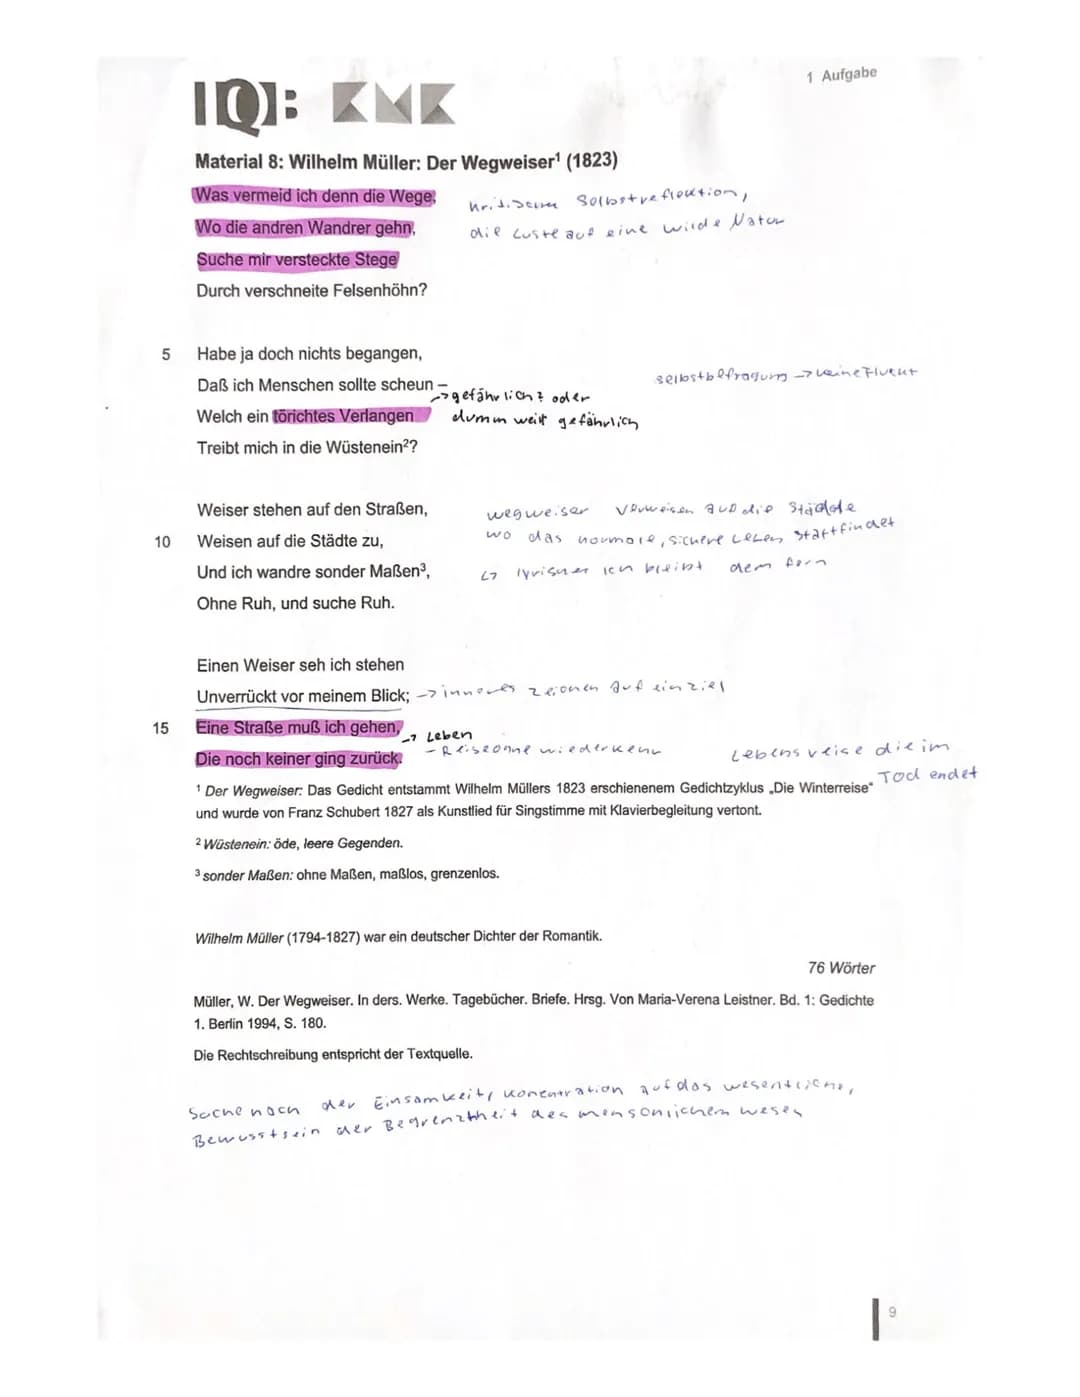 1 Aufgabe
IQB KMK
Material 8: Wilhelm Müller: Der Wegweiser¹ (1823)
Was vermeid ich denn die Wege,
Wo die andren Wandrer gehn,
Suche mir versteckte Stege
Durch verschneite Felsenhöhn?
Selbstreflektion,
die Luste auf eine wilde Natur
5 Habe ja doch nichts begangen,
Daß ich Menschen sollte scheun –
Welch ein törichtes Verlangen
Treibt mich in die Wüstenein²?
selbstbefragung -> keine Flucht
-> gefährlich? oder
dumm weil gefährlich
Weiser stehen auf den Straßen,
10 Weisen auf die Städte zu,
Und ich wandre sonder Maßen³,
Ohne Ruh, und suche Ruh.
wegweiser verweisen auf die Städte
wo das normale, sichere Leben stattfindet
↳ lyrischer ich bleibt dem fern
Einen Weiser seh ich stehen
Unverrückt vor meinem Blick; -> inneres zeichen auf ein ziel
15 Eine Straße muß ich gehen, -> Leben
Die noch keiner ging zurück. - Reise ohne wiederkehr
Lebensreise die im
Tod endet
¹ Der Wegweiser: Das Gedicht entstammt Wilhelm Müllers 1823 erschienenem Gedichtzyklus „Die Winterreise“
und wurde von Franz Schubert 1827 als Kunstlied für Singstimme mit Klavierbegleitung vertont.
² Wüstenein: öde, leere Gegenden.
³ sonder Maßen: ohne Maßen, maßlos, grenzenlos.
Wilhelm Müller (1794-1827) war ein deutscher Dichter der Romantik.
76 Wörter
Müller, W. Der Wegweiser. In ders. Werke. Tagebücher. Briefe. Hrsg. Von Maria-Verena Leistner. Bd. 1: Gedichte
1. Berlin 1994, S. 180.
Die Rechtschreibung entspricht der Textquelle.
Suche nach der Einsamkeit, konentration auf das wesentliche,
Bewusstsein der Begrenztheit des menschlichem wesen
9